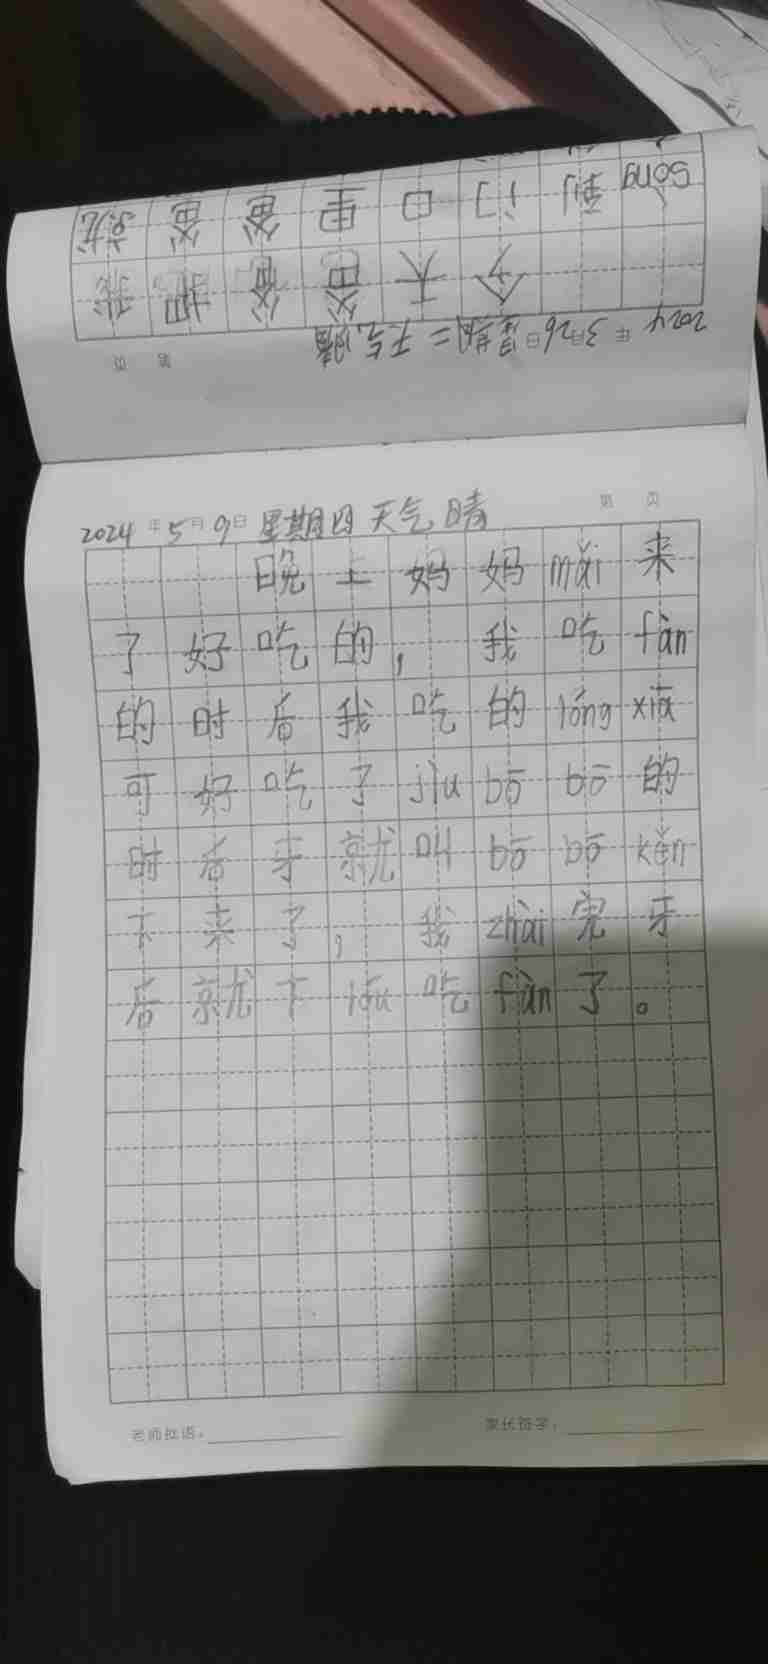 2024年3月26日星期二天气晴
第 页
今天爸爸把我
sòng到门口里爸爸就
2024年5月9日星期四天气晴
第 页
晚上妈妈mǎi来
了好吃的，我吃fàn
的时后我吃的lóng xiā
可好吃了jiu bō bō的
时后牙就叫bō bō kěn
下来了，我zhāi完牙
后就下lóu吃fàn了。
老师批语： 家长签字：